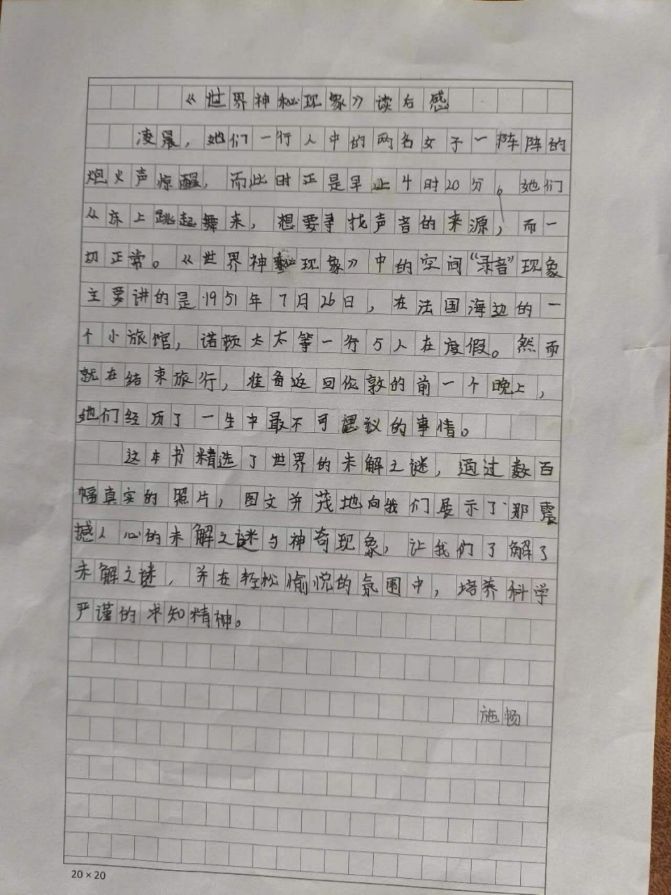 《世界神秘现象》读后感
凌晨，她们一行人中的两名女子一阵阵的
炮火声惊醒，而此时正是早上4时20分。她们
从床上跳起舞来，想要寻找声音的来源，而一
切正常。《世界神秘现象》中的空间“录音”现象
主要讲的是1951年7月26日，在法国海边的一
个小旅馆，诺顿太太等一行5人在度假。然而
就在结束旅行，准备返回伦敦的前一个晚上，
她们经历了一生中最不可思议的事情。
这本书精选了世界的未解之谜，通过数百
幅真实的照片，图文并茂地向我们展示了那震
撼人心的未解之谜与神奇现象，让我们了解了
未解之谜，并在轻松愉悦的氛围中，培养科学
严谨的求知精神。
施畅
20×20